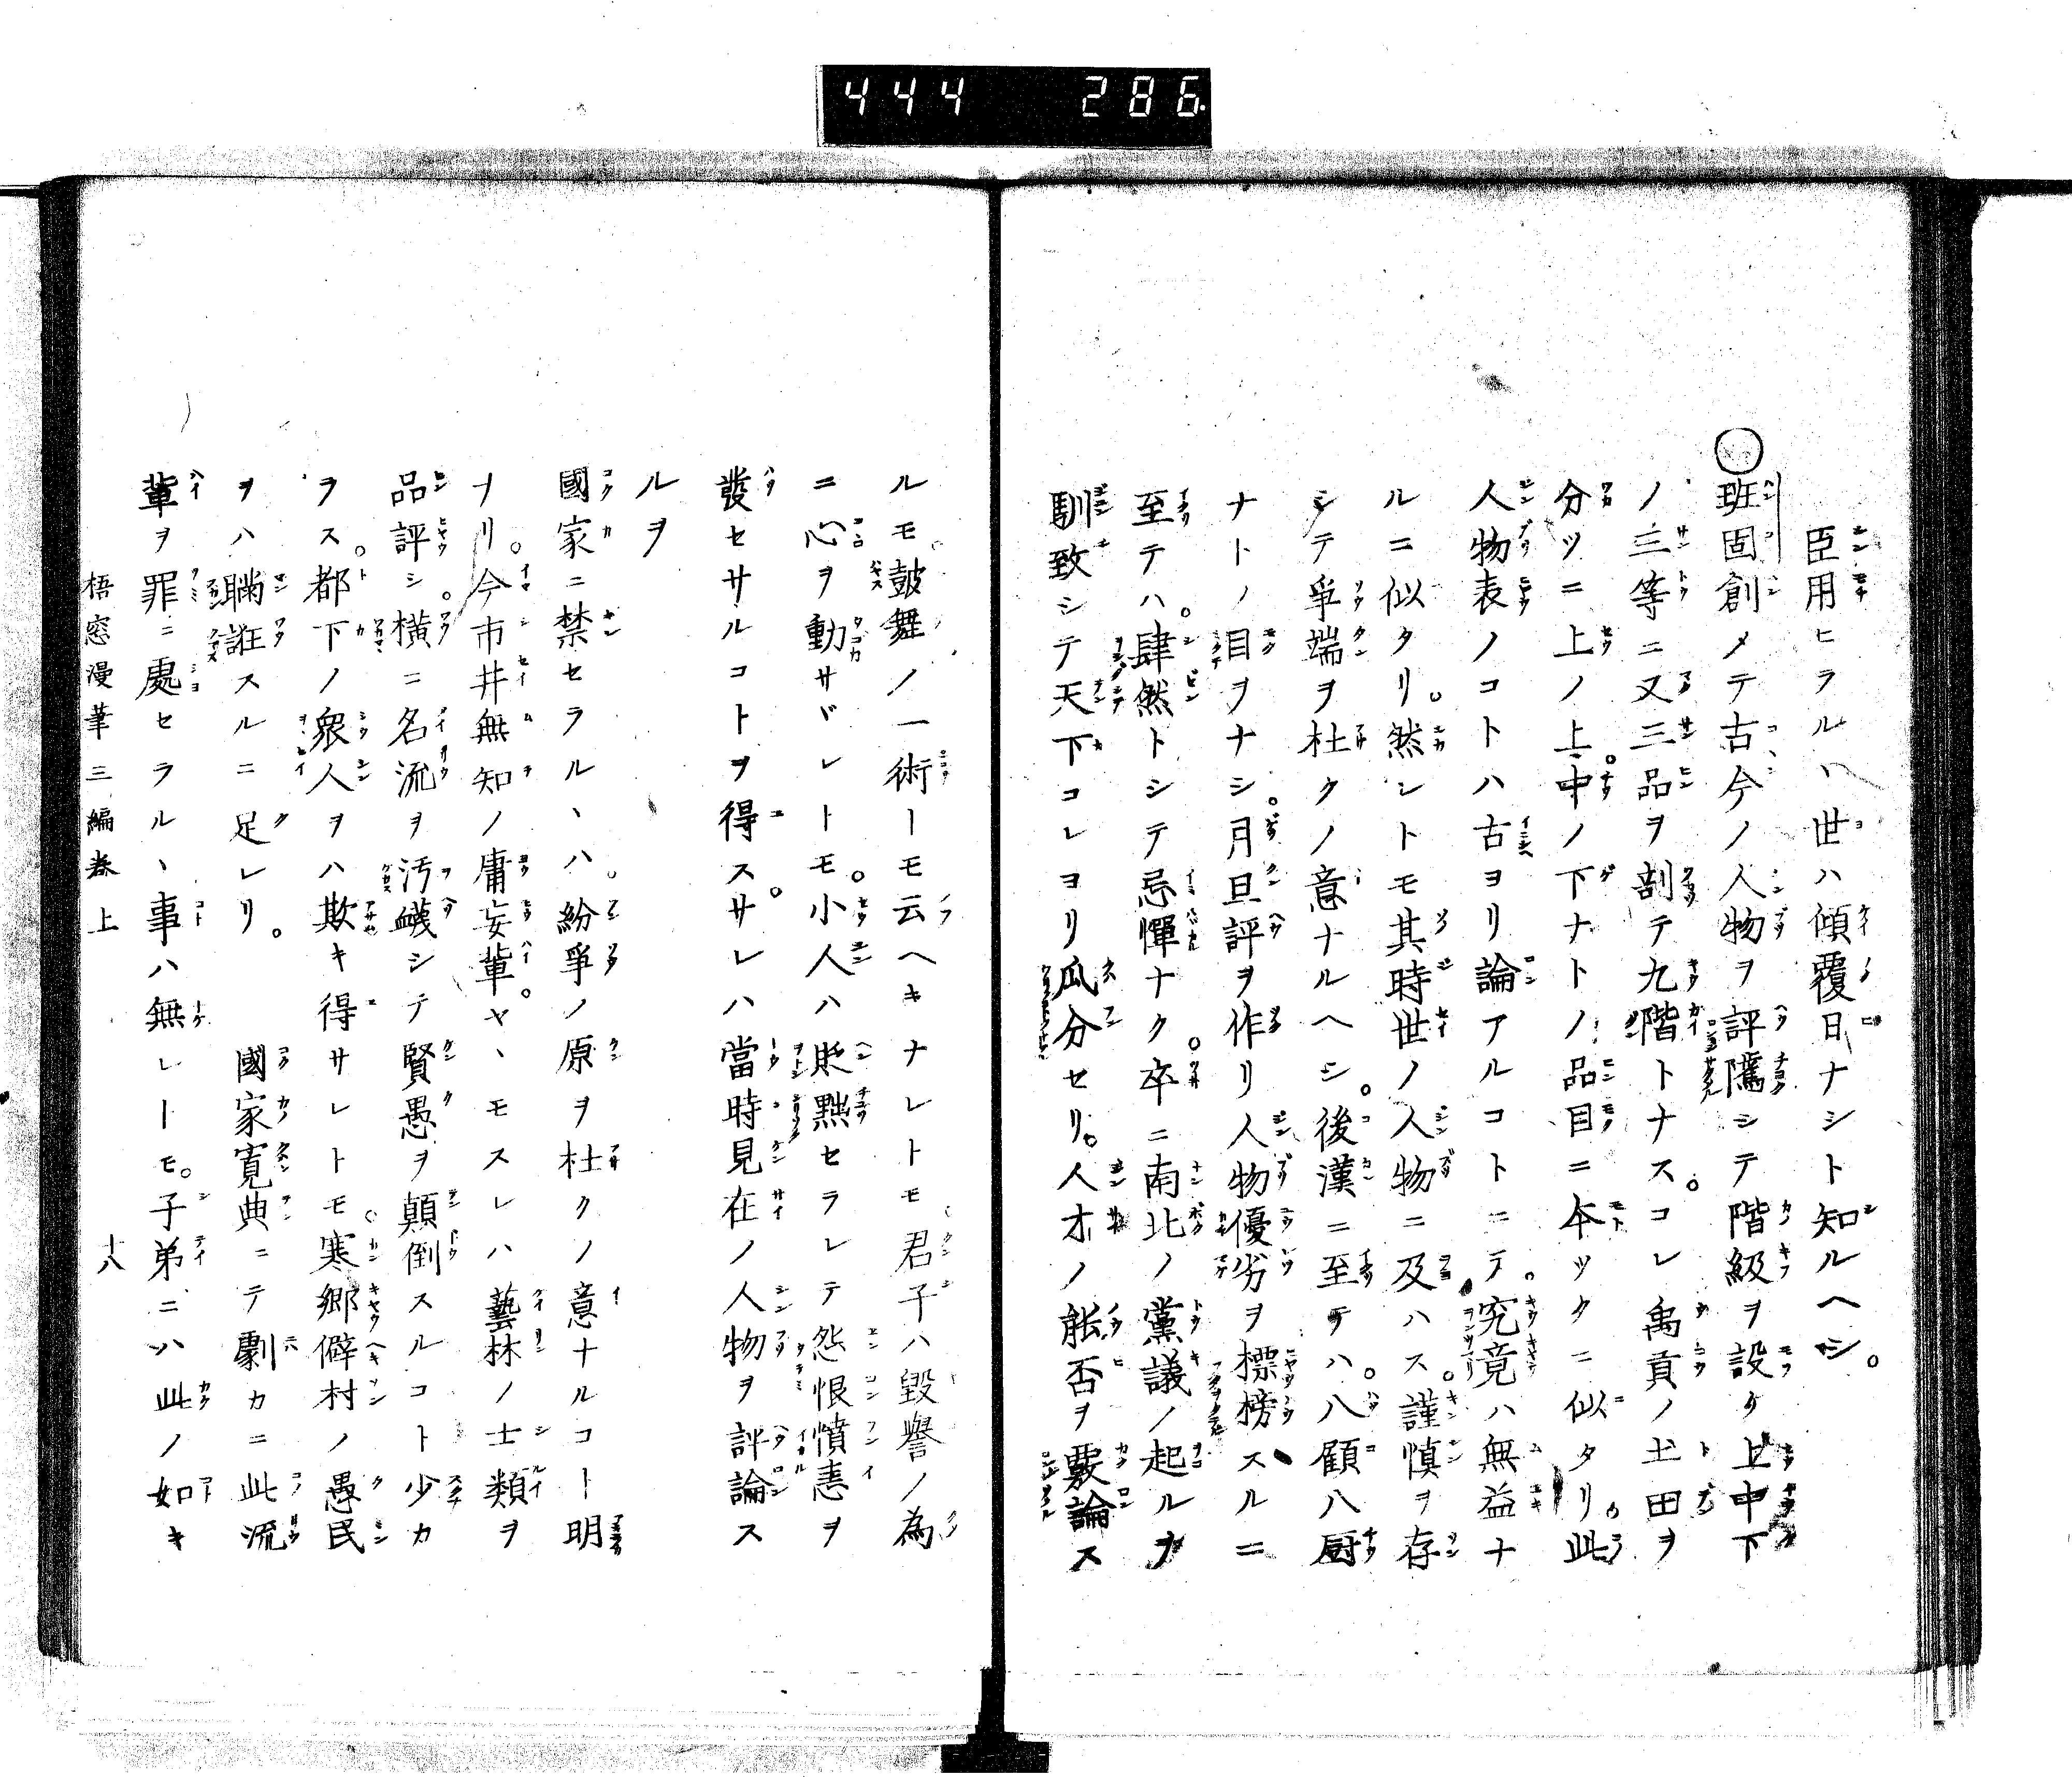 444 286
臣用ヒラルヽ世ハ傾覆日ナシト知ルヘシ。
班固創メテ古今ノ人物ヲ評隲シテ階級ヲ設ケ上中下
ノ三等ニ又三品ヲ剖テ九階トナス。コレ禹貢ノ土田ヲ
分ツニ上ノ上。中ノ下ナトノ品目ニ本ツクニ似タリ。此
人物表ノコトハ古ヨリ論アルコトニテ。究竟ハ無益ナ
ルニ似タリ。然レトモ其時世ノ人物ニ及ハス。謹慎ヲ存
シテ爭端ヲ杜クノ意ナルヘシ。後漢ニ至テハ。八顧八厨
ナトノ目ヲナシ。月旦評ヲ作リ人物優劣ヲ標榜スルニ
至テハ。肆然トシテ忌憚ナク。卒ニ南北ノ黨議ノ起ルヲ
馴致シテ天下コレヨリ瓜分セリ。人才ノ能否ヲ覈論ス
ルモ鼓舞ノ一術ーモ云ヘキナレトモ君子ハ毀譽ノ為
ニ心ヲ動サヾレトモ。小人ハ貶黜セラレテ怨恨憤恚ヲ
發セサルコトヲ得ス。サレハ當時見在ノ人物ヲ評論ス
ルヲ
國家ニ禁セラルヽハ。紛爭ノ原ヲ杜クノ意ナルコー明
ナリ。今市井無知ノ庸妄輩。ヤヽモスレハ藝林ノ士類ヲ
品評シ。横ニ名流ヲ汚衊シテ賢愚ヲ顛倒スルコト少カ
ラス。都下ノ衆人ヲハ欺キ得サレトモ。寒郷僻村ノ愚民
ヲハ瞞誑スルニ足レリ。國家寛典ニテ劇カニ此流
輩ヲ罪ニ處セラルヽ事ハ無レーモ。子弟ニハ此ノ如キ
梧窓漫筆三編巻上 十八